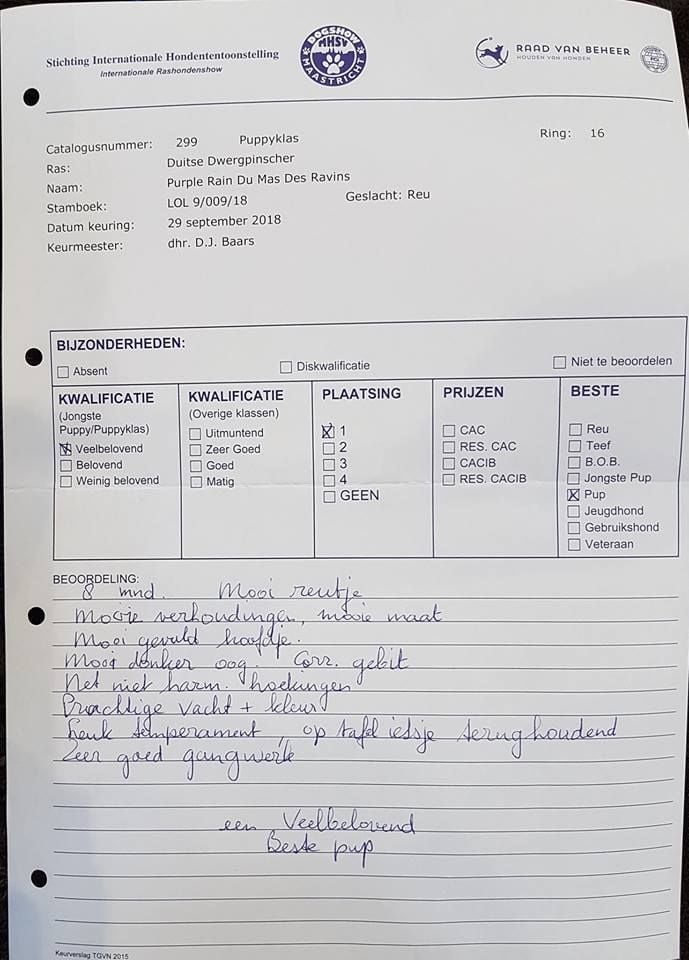 Stichting Internationale Hondententoonstelling
Internationale Rashondenshow
DOGSHOW
MHSV
MAASTRICHT
RAAD VAN BEHEER
HOUDEN VAN HONDEN
Catalogusnummer: 299 Puppyklas Ring: 16
Ras: Duitse Dwergpinscher
Naam: Purple Rain Du Mas Des Ravins
Stamboek: LOL 9/009/18 Geslacht: Reu
Datum keuring: 29 september 2018
Keurmeester: dhr. D.J. Baars
BIJZONDERHEDEN:
Absent Diskwalificatie Niet te beoordelen
KWALIFICATIE
(Jongste
Puppy/Puppyklas)
Veelbelovend
Belovend
Weinig belovend
KWALIFICATIE
(Overige klassen)
Uitmuntend
Zeer Goed
Goed
Matig
PLAATSING
1
2
3
4
GEEN
PRIJZEN
CAC
RES. CAC
CACIB
RES. CACIB
BESTE
Reu
Teef
B.O.B.
Jongste Pup
Pup
Jeugdhond
Gebruikshond
Veteraan
BEOORDELING:
8 mnd. Mooi reutje
Mooie verhoudingen, mooie maat
Mooi gevuld hoofdje.
Mooi donker oog. Corr. gebit
Net niet harm. hoekingen
Prachtige vacht + kleur
Leuk temperament, op tafel ietsje terughoudend
Zeer goed gangwerk
een Veelbelovend
Beste pup
Keurverslag TGVN 2015